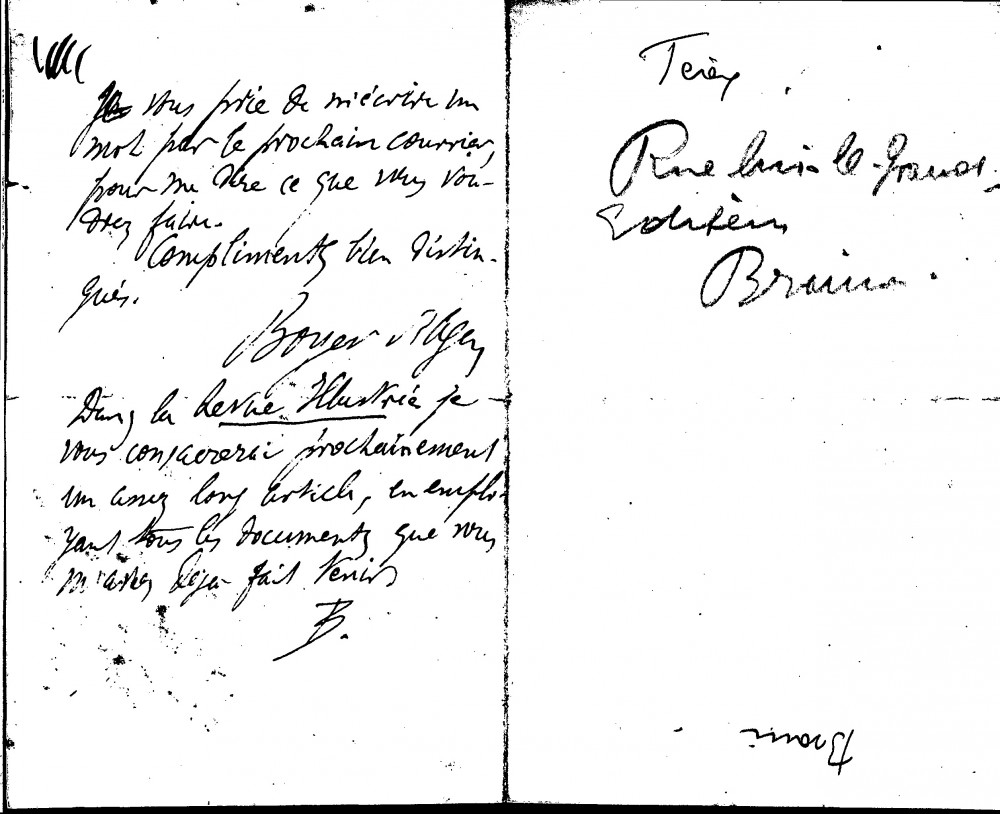 Je vous prie de m'écrire un
mot par le prochain courrier,
pour me dire ce que vous vou-
drez faire.
Compliments bien distin-
gués.
Boyer d'Agen
Dans la Revue Illustrée je
vous consacrerai prochainement
un assez long article, en emplo-
yant tous les documents que vous
m'avez déjà fait tenir
B.
Rue Louis-le-Grand.
Editeur